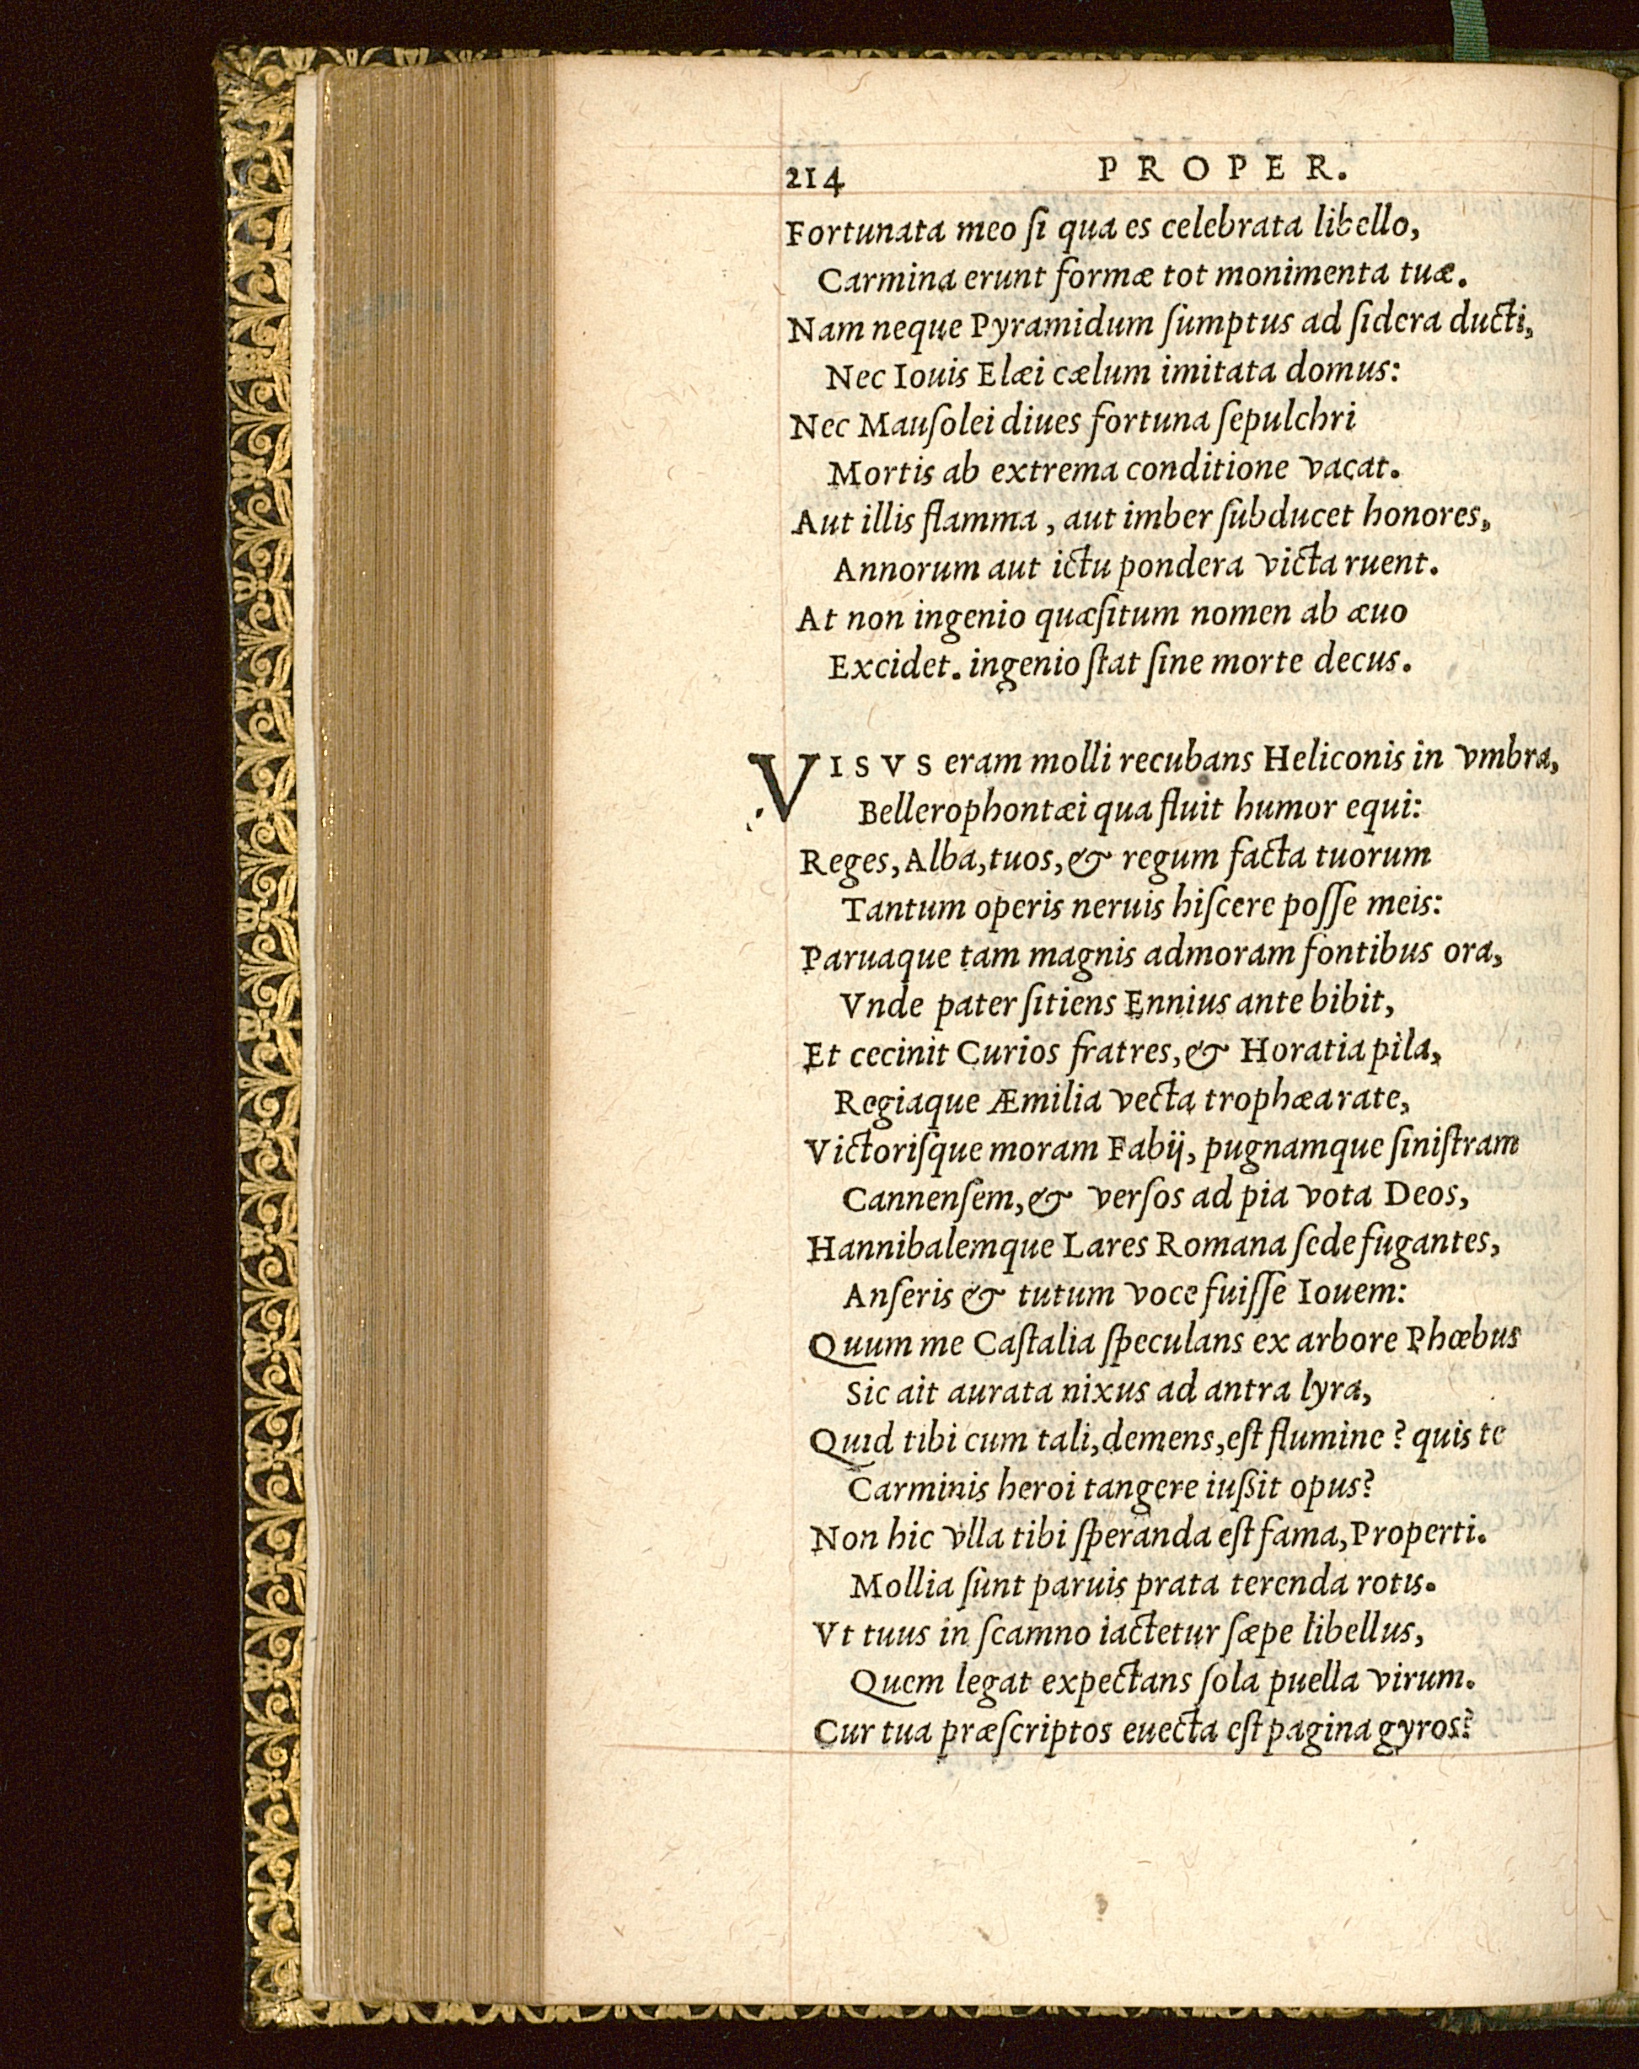 214 PROPER.
Fortunata meo ſi qua es celebrata libello,
Carmina erunt formæ tot monimenta tuæ.
Nam neque Pyramidum ſumptus ad ſidera ducti,
Nec Iouis Elæi cælum imitata domus:
Nec Mauſolei diues fortuna ſepulchri
Mortis ab extrema conditione vacat.
Aut illis flamma, aut imber ſubducet honores,
Annorum aut ictu pondera victa ruent.
At non ingenio quæſitum nomen ab æuo
Excidet. ingenio ſtat ſine morte decus.
VISVS eram molli recubans Heliconis in vmbra,
Bellerophontæi qua fluit humor equi:
Reges, Alba, tuos, & regum facta tuorum
Tantum operis neruis hiſcere poſſe meis:
Paruaque tam magnis admoram fontibus ora,
Vnde pater ſitiens Ennius ante bibit,
Et cecinit Curios fratres, & Horatia pila,
Regiaque Æmilia vecta trophæa rate,
Victoriſque moram Fabij, pugnamque ſiniſtram
Cannenſem, & verſos ad pia vota Deos,
Hannibalemque Lares Romana ſede fugantes,
Anſeris & tutum voce fuiſſe Iouem:
Quum me Caſtalia ſpeculans ex arbore Phœbus
Sic ait aurata nixus ad antra lyra,
Quid tibi cum tali, demens, eſt flumine? quis te
Carminis heroi tangere iußit opus?
Non hic vlla tibi ſperanda eſt fama, Properti.
Mollia ſunt paruis prata terenda rotis.
Vt tuus in ſcamno iactetur ſæpe libellus,
Quem legat expectans ſola puella virum.
Cur tua præſcriptos euecta eſt pagina gyros?